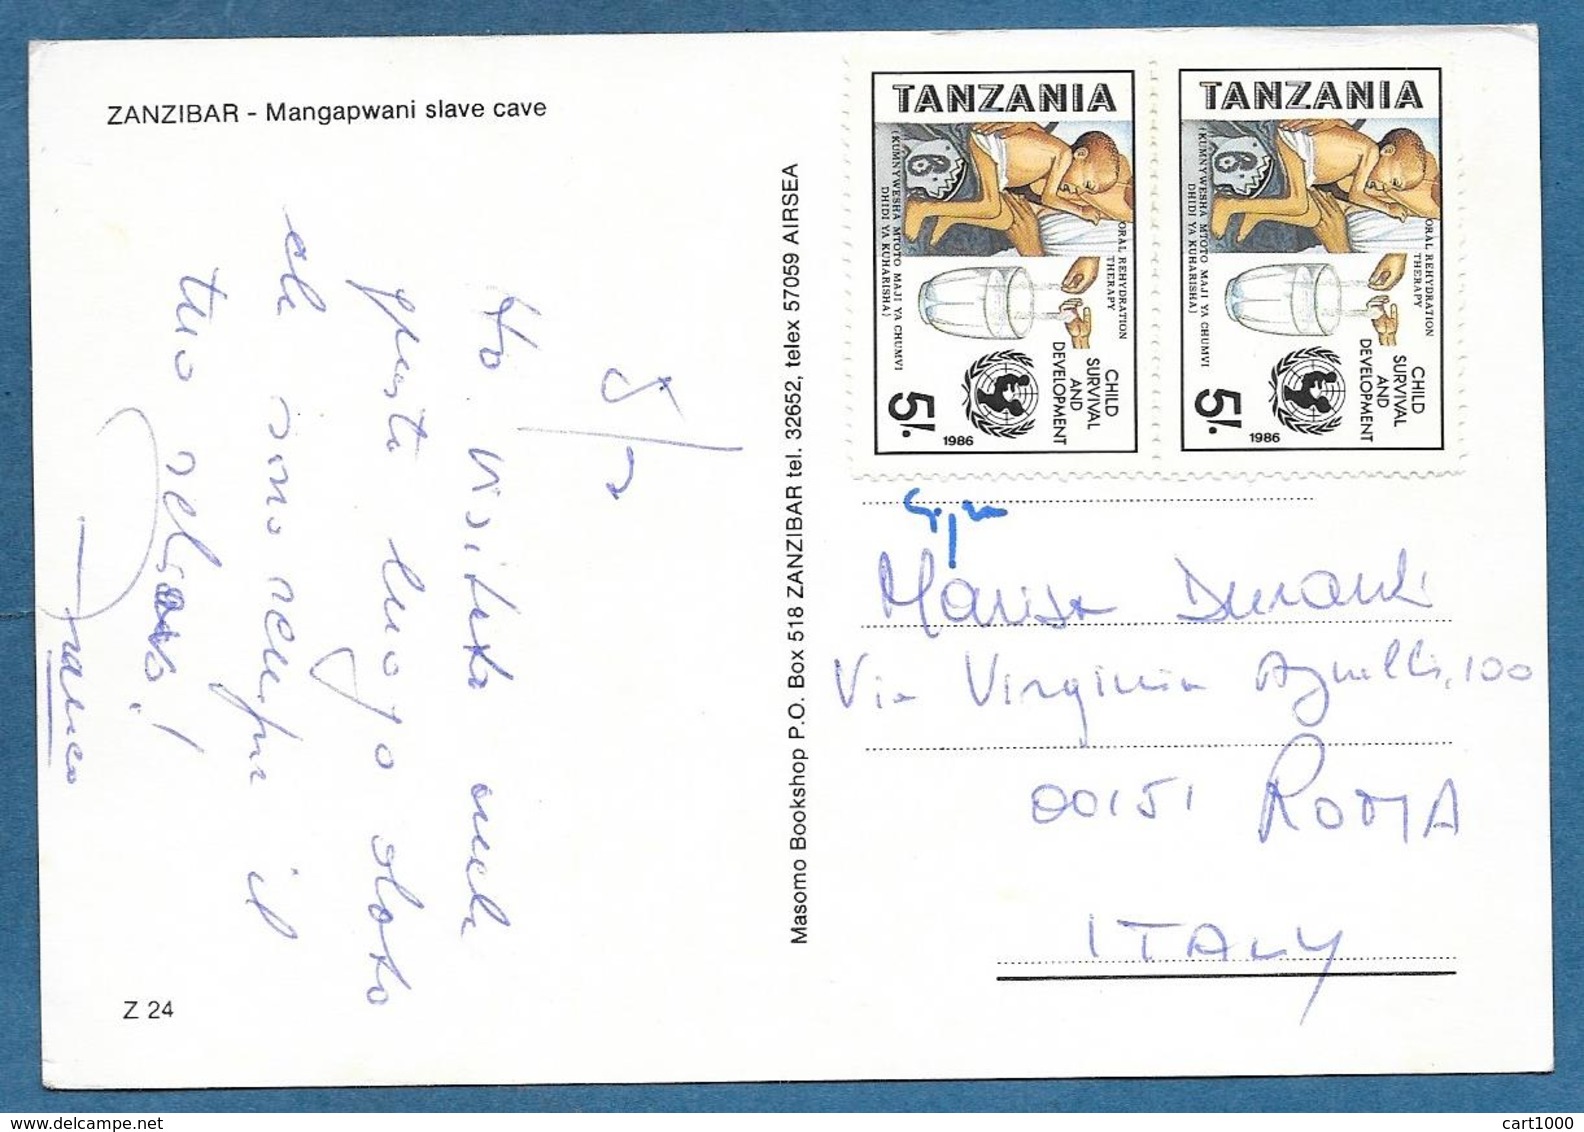 ZANZIBAR - Mangapwani slave cave
5/7
Ho visitato anche
questo luogo stato
ed sono sempre il
tuo schiavo!
Franco
Z 24
Masomo Bookshop P.O. Box 518 ZANZIBAR tel. 32652, telex 57059 AIRSEA
TANZANIA
ORAL REHYDRATION
THERAPY
(KUMNYWESHA MTOTO MAJI YA CHUMVI
DHIDI YA KUHARISHA)
CHILD
SURVIVAL
AND
DEVELOPMENT
5/.
1986
TANZANIA
ORAL REHYDRATION
THERAPY
(KUMNYWESHA MTOTO MAJI YA CHUMVI
DHIDI YA KUHARISHA)
CHILD
SURVIVAL
AND
DEVELOPMENT
5/.
1986
Marisa Duranti
Via Virginia Agnelli, 100
00151 ROMA
ITALY
www.delcampe.net
cart1000